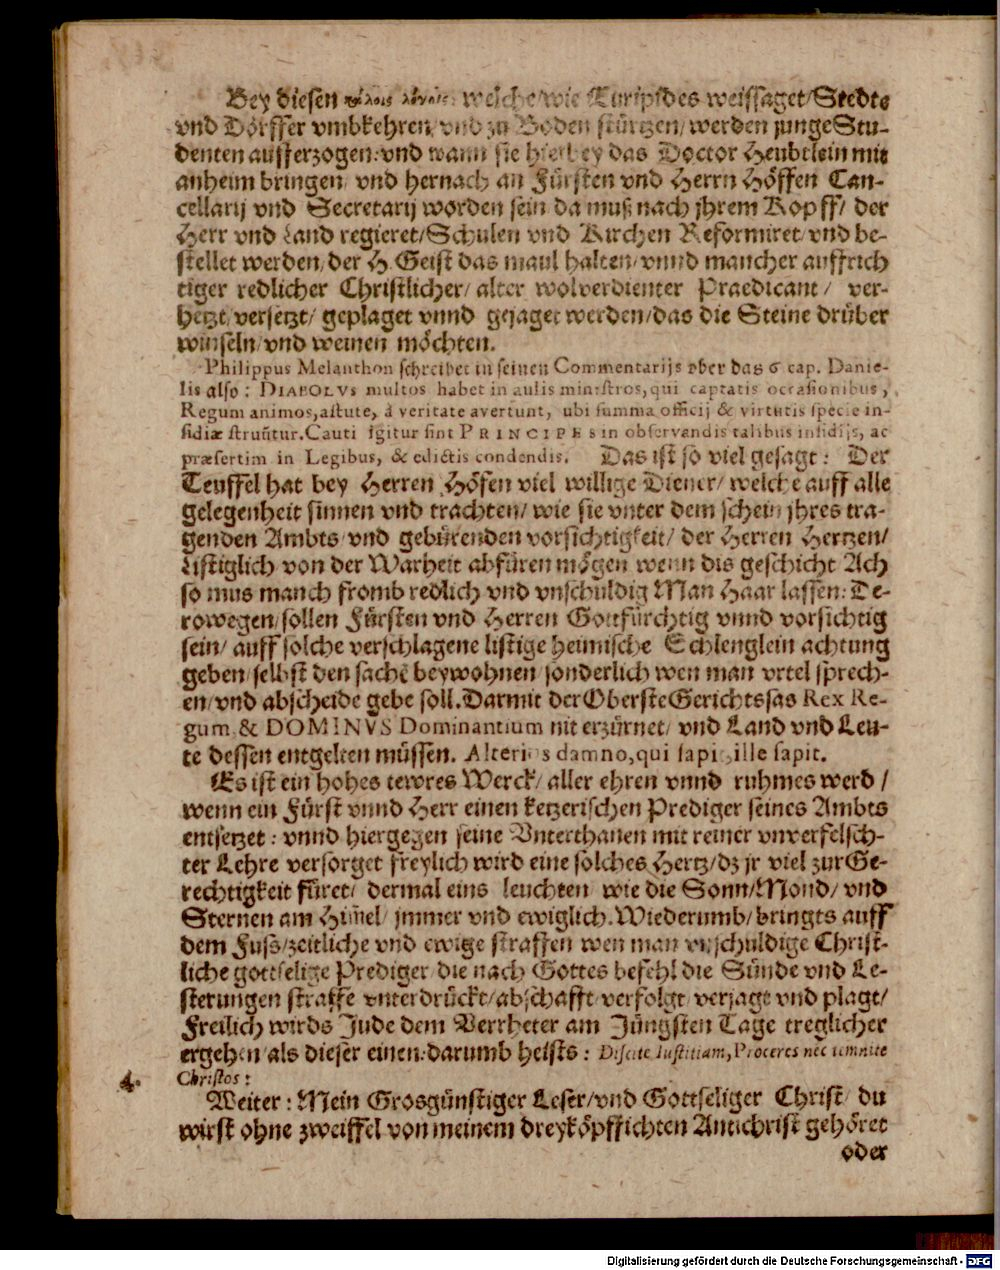 Bey diesen welche/wie Euripides weissaget/Stedte
vnd Dörffer vmbkehren/vnd zu Boden stürtzen/werden junge Stu-
denten aufferzogen:vnd wann sie hierbey das Doctor Heubtlein mit
anheim bringen/ vnd hernach an Fürsten vnd Herrn Höffen Can-
cellarij vnd Secretarij worden sein da muß nach jhrem Kopff/ der
Herr vnd Land regieret/Schulen vnd Kirchen Reformiret/vnd be-
stellet werden/der H. Geist das maul halten/vnnd mancher auffrich
tiger redlicher Christlicher/ alter wolverdienter Praedicant/ ver-
hetzt/versetzt/ geplaget vnnd gejaget werden/das die Steine drüber
winseln/vnd weinen möchten.
Philippus Melanthon schreibet in seinen Commentarijs vber das 6 cap. Danie-
lis also: DIABOLVS multos habet in aulis ministros,qui captatis occasionibus,
Regum animos,astute, à veritate avertunt, ubi summa officij & virtutis specie in-
sidiæ struūtur.Cauti igitur sint PRINCIPES in observandis talibus insidijs, ac
præsertim in Legibus, & edictis condendis. Das ist so viel gesagt: Der
Teuffel hat bey Herren Höfen viel willige Diener/ welche auff alle
gelegenheit sinnen vnd trachten/ wie sie vnter dem schein jhres tra-
genden Ambts vnd gebürenden vorsichtigkeit/ der Herren Hertzen/
Listiglich von der Warheit abfüren mögen wenn dis geschicht Ach
so mus manch fromb redlich vnd vnschuldig Man Haar lassen: De-
rowegen/sollen Fürsten vnd Herren Gottfürchtig vnnd vorsichtig
sein/ auff solche verschlagene listige heimische Schlenglein achtung
geben/selbst den sachē beywohnen/sonderlich wen man vrtel sprech-
en/vnd abscheide gebe soll.Darmit der Oberste Gerichtssas Rex Re-
gum & DOMINVS Dominantium nit erzürnet/ vnd Land vnd Leu-
te dessen entgelten müssen. Alterius damno,qui sapit,ille sapit.
Es ist ein hohes tewres Werck/ aller ehren vnnd ruhmes werd/
wenn ein Fürst vnnd Herr einen ketzerischen Prediger seines Ambts
entsetzet: vnnd hiergegen seine Vnterthanen mit reiner vnverfelsch-
ter Lehre versorget freylich wird eine solches Hertz/dz jr viel zur Ge-
rechtigkeit füret/ dermal eins leuchten wie die Sonn/Mond/ vnd
Sternen am Him̄el/ jmmer vnd ewiglich.Wiederumb/bringts auff
dem Fuss/zeitliche vnd ewige straffen wen man vnschuldige Christ-
liche gottselige Prediger/die nach Gottes befehl die Sünde vnd Le-
sterungen straffe vnterdrückt/abschafft verfolgt/verjagt vnd plagt/
Freilich wirds Jude dem Verrheter am Jüngsten Tage treglicher
ergehen/als dieser einen:darumb heists: Discite Iustitiam,Proceres nec temnite
Christos:
4. Weiter: Mein Grosgünstiger Leser/vnd Gottseliger Christ/ du
wirst ohne zweiffel von meinem dreyköpffichten Antichrist gehöret
oder
Digitalisierung gefördert durch die Deutsche Forschungsgemeinschaft - DFG